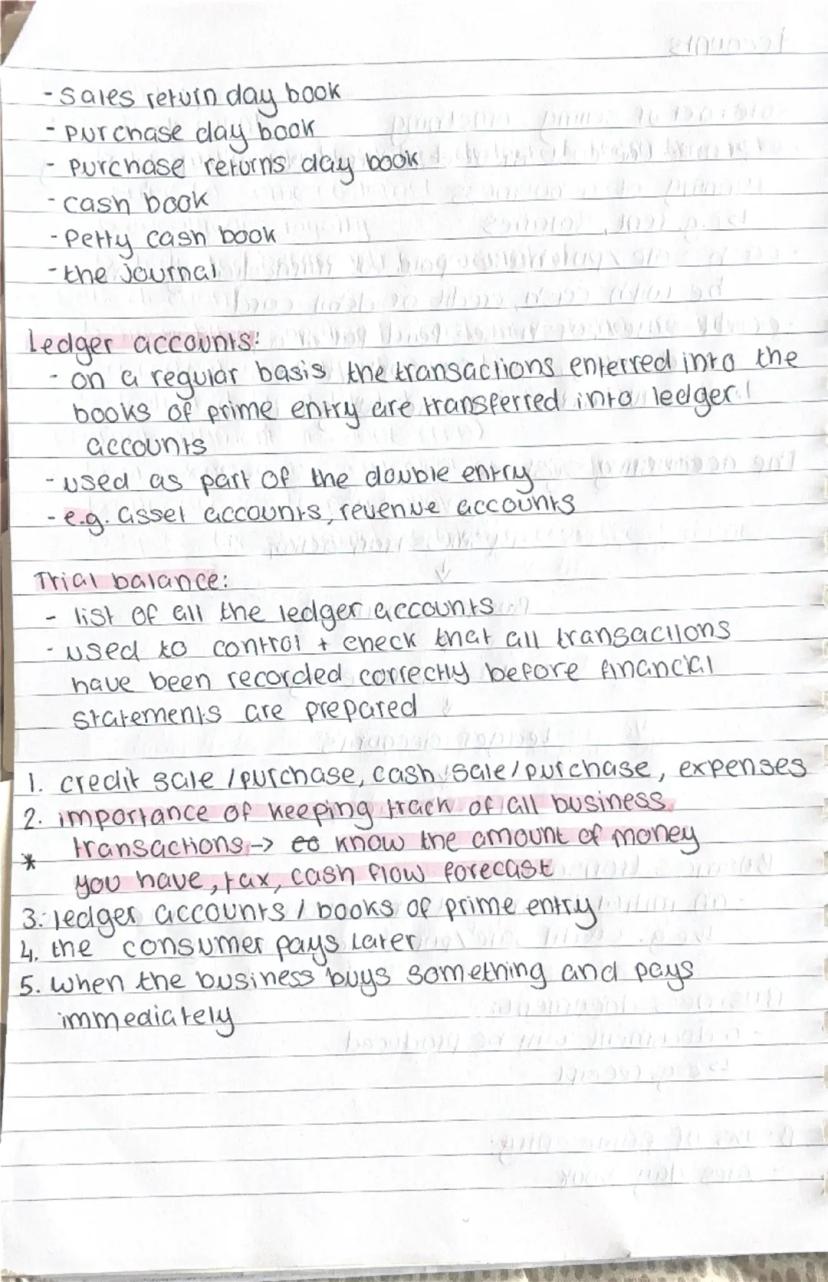 - sales return day book
- purchase day book
- purchase returns day book
- cash book
- Petty cash book
- the journal
Ledger accounts:
- on a regular basis the transactions enterred into the
books of prime entry are transferred into ledger
accounts
- used as part of the double entry
- e.g. asset accounts, revenue accounts
Trial balance:
- list of all the ledger accounts
- used to control + check that all transactions
have been recorded correctly before financial
statements are prepared
1. credit sale / purchase, cash sale / purchase, expenses
2. importance of keeping track of all business
* transactions -> know the amount of money
you have, tax, cash flow forecast
3. ledger accounts / books of prime entry
4. the consumer pays later
5. when the business buys something and pays
immediately